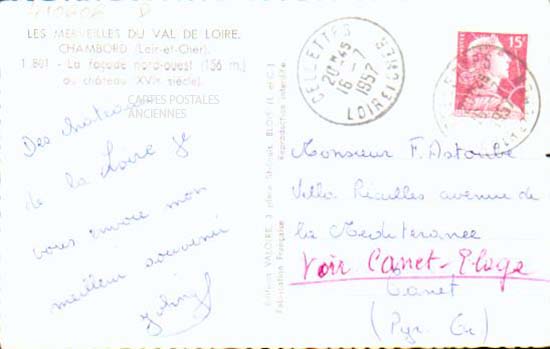 LES MERVEILLES DU VAL DE LOIRE.
CHAMBORD (Loir-et-Cher).
1 801 - La façade nord-ouest (156 m.)
du château XVIe siècle).
CARTES POSTALES
ANCIENNES
Des châteaux
de la Loire je
vous envoie mon
meilleur souvenir
Editions VALOIRE, 3 place St-Louis, BLOIS (L. et C.)
Fabrication Française Reproduction interdite.
CELLETTES
20H45
16-7
1957
LOIR ET CHER
15F
1957
Monsieur F.
Villa avenue de
la Mediteranee
Voir Canet-Plage
Canet
(Pyr. Or)